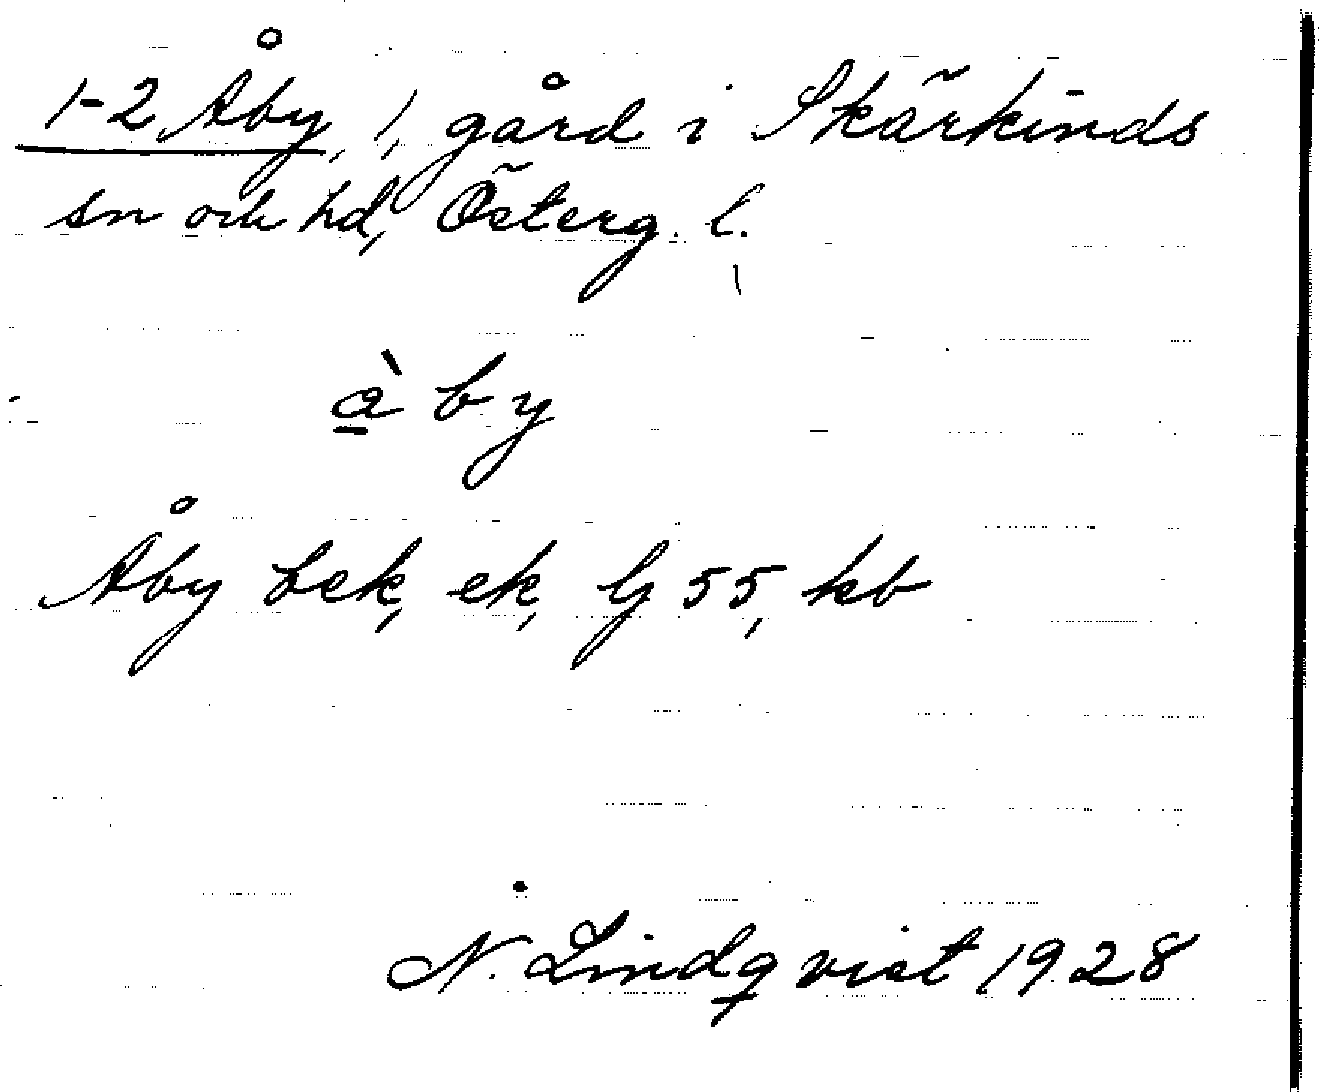 1-2 Åby, 1, gård i Skärkinds
sn och hd, Österg. l.
à̱ b y
Åby bek, ek, lj 55, kb
N. Lindqvist 1928